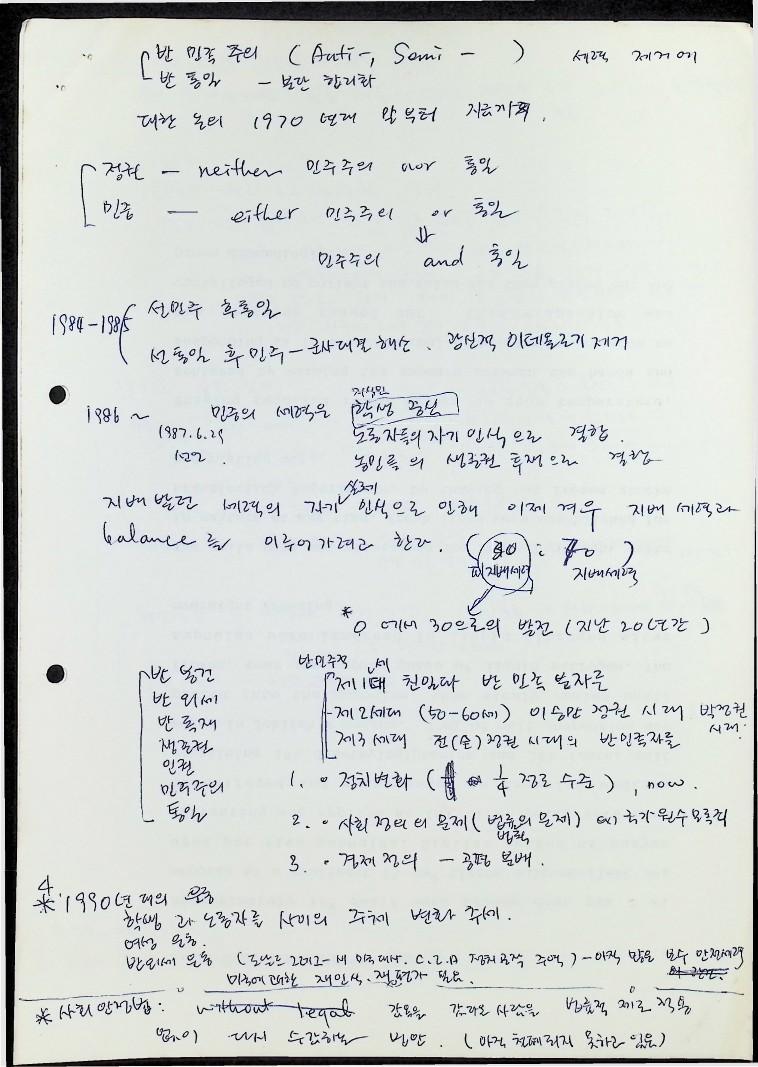 반 민족 주의 ( Anti-, Semi - ) 세력 제거에
반 통일 - 보단 합리화
대한 논의 1970 년대 말부터 지금까지.
정권 - neither 민주주의 nor 통일
민중 - either 민주주의 or 통일
⇓
민주주의 and 통일
1984-1985 선민주 후통일
선통일 후 민주 - 군사대결 해소. 광신적 이데올로기 제거
지식인
1986 ~ 민중의 세력은 학생 중심
1987.6.29 노동자들의 자기 인식으로 결합.
선언 농민들의 생존권 투쟁으로 결합
실체
지배 받던 세력의 자기 인식으로 인해 이제 겨우 지배 세력과
balance 를 이루어가려고 한다. ( 30 : 70 )
피지배세력 지배세력
* 0 에서 30으로의 발전 (지난 20년간)
반 봉건
반 외세
반 독재
생존권
인권
민주주의
통일
반민족적
제1세대 친일파 반 민족 분자들
제2세대 (50-60세) 이승만 정권 시대, 박정권 시대.
제3세대 전(全)정권 시대의 반민족자들
1. ◦ 정치변화 ( 1/4 정도 수준 ), now.
2. ◦ 사회정의의 문제 ( 법률의 문제) ex) 국가원수모독죄
법학
3. ◦ 경제 정의 - 공평 분배.
4
* 1990년대의 운동
학생 과 노동자들 사이의 주체 변화 추세.
여성 운동.
반외세 운동 (도날드 그레그 - 새 미국대사. C.I.A 정치공작 주역) - 아직 많은 보수 안정세력
미국에 대한 재인식. 재평가 필요.
* 사회안전법: without legal 감옥을 갔다온 사람을 법률적 제도 적용
없이 다시 수감하는 법안. (아직 철폐되지 못하고 있음)